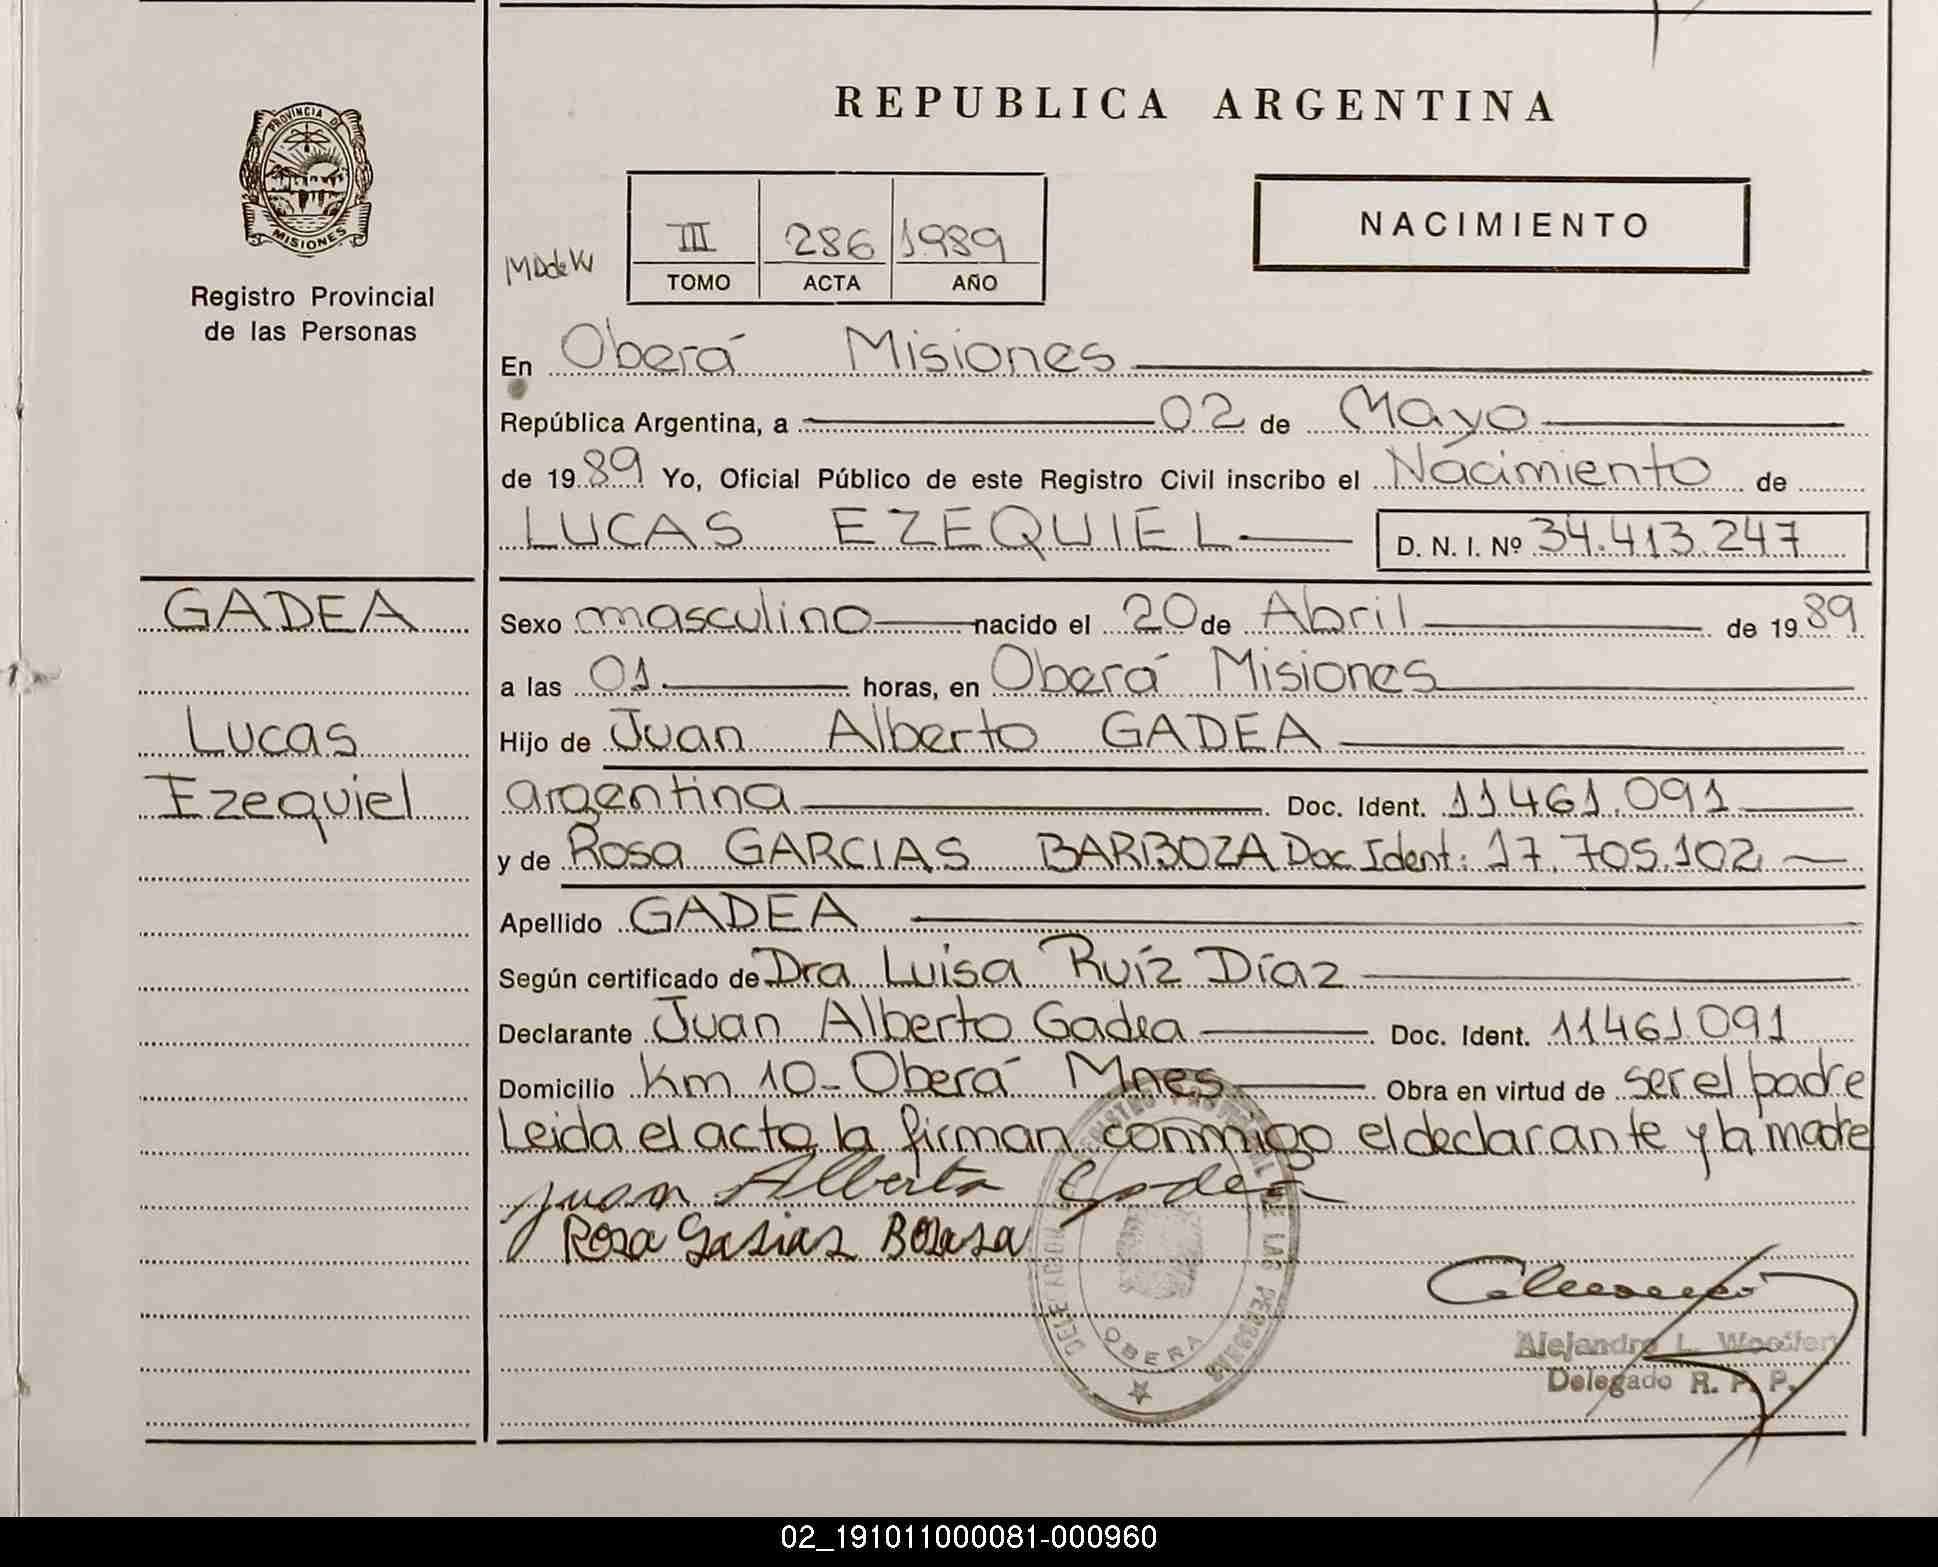 REPUBLICA ARGENTINA
PROVINCIA DE
MISIONES
Registro Provincial
de las Personas
NACIMIENTO
III 286 1989
TOMO ACTA AÑO
En Oberá Misiones
República Argentina, a 02 de Mayo
de 1989 Yo, Oficial Público de este Registro Civil inscribo el Nacimiento de
LUCAS EZEQUIEL D. N. I. Nº 34.413.247
GADEA
Lucas
Ezequiel
Sexo masculino nacido el 20 de Abril de 1989
a las 01 horas, en Oberá Misiones
Hijo de Juan Alberto GADEA
argentina Doc. Ident. 11461.091
y de Rosa GARCIAS BARBOZA Doc Ident: 17.705.102
Apellido GADEA
Según certificado de Dra Luisa Ruíz Díaz
Declarante Juan Alberto Gadea Doc. Ident. 11461.091
Domicilio Km 10 - Oberá Mnes Obra en virtud de ser el padre
Leida el acta la firman conmigo el declarante y la madre
Juan Alberto Gadea
Rosa
REGISTRO PROVINCIAL DE LAS PERSONAS
OBERA
Alejandro L.
Delegado R. P. P.
02_191011000081-000960